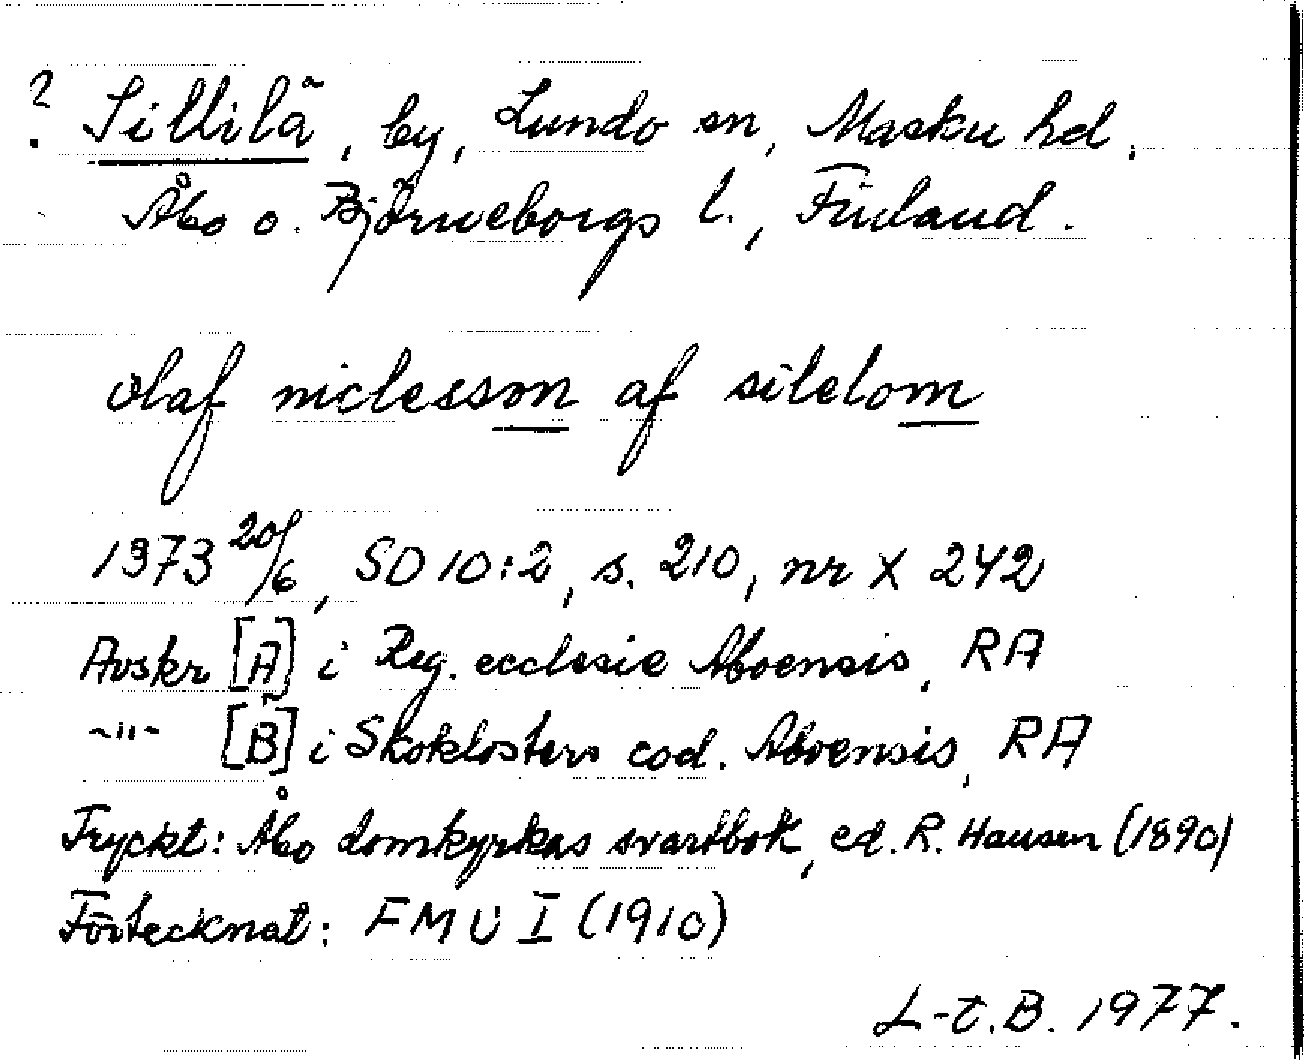 ? Sillilä, by, Lundo sn, Masku hd,
Åbo o. Björneborgs l., Finland.
olaf niclesson af silelom
1373 20/6, SD 10:2, s. 210, nr X 242
Avskr [A] i Reg. ecclesie Aboensis, RA
-"- [B] i Skoklosters cod. Aboensis, RA
Tryckt: Åbo domkyrkas svartbok, ed. R. Hausen (1890)
Förtecknat: FMU I (1910)
L-E.B. 1977.